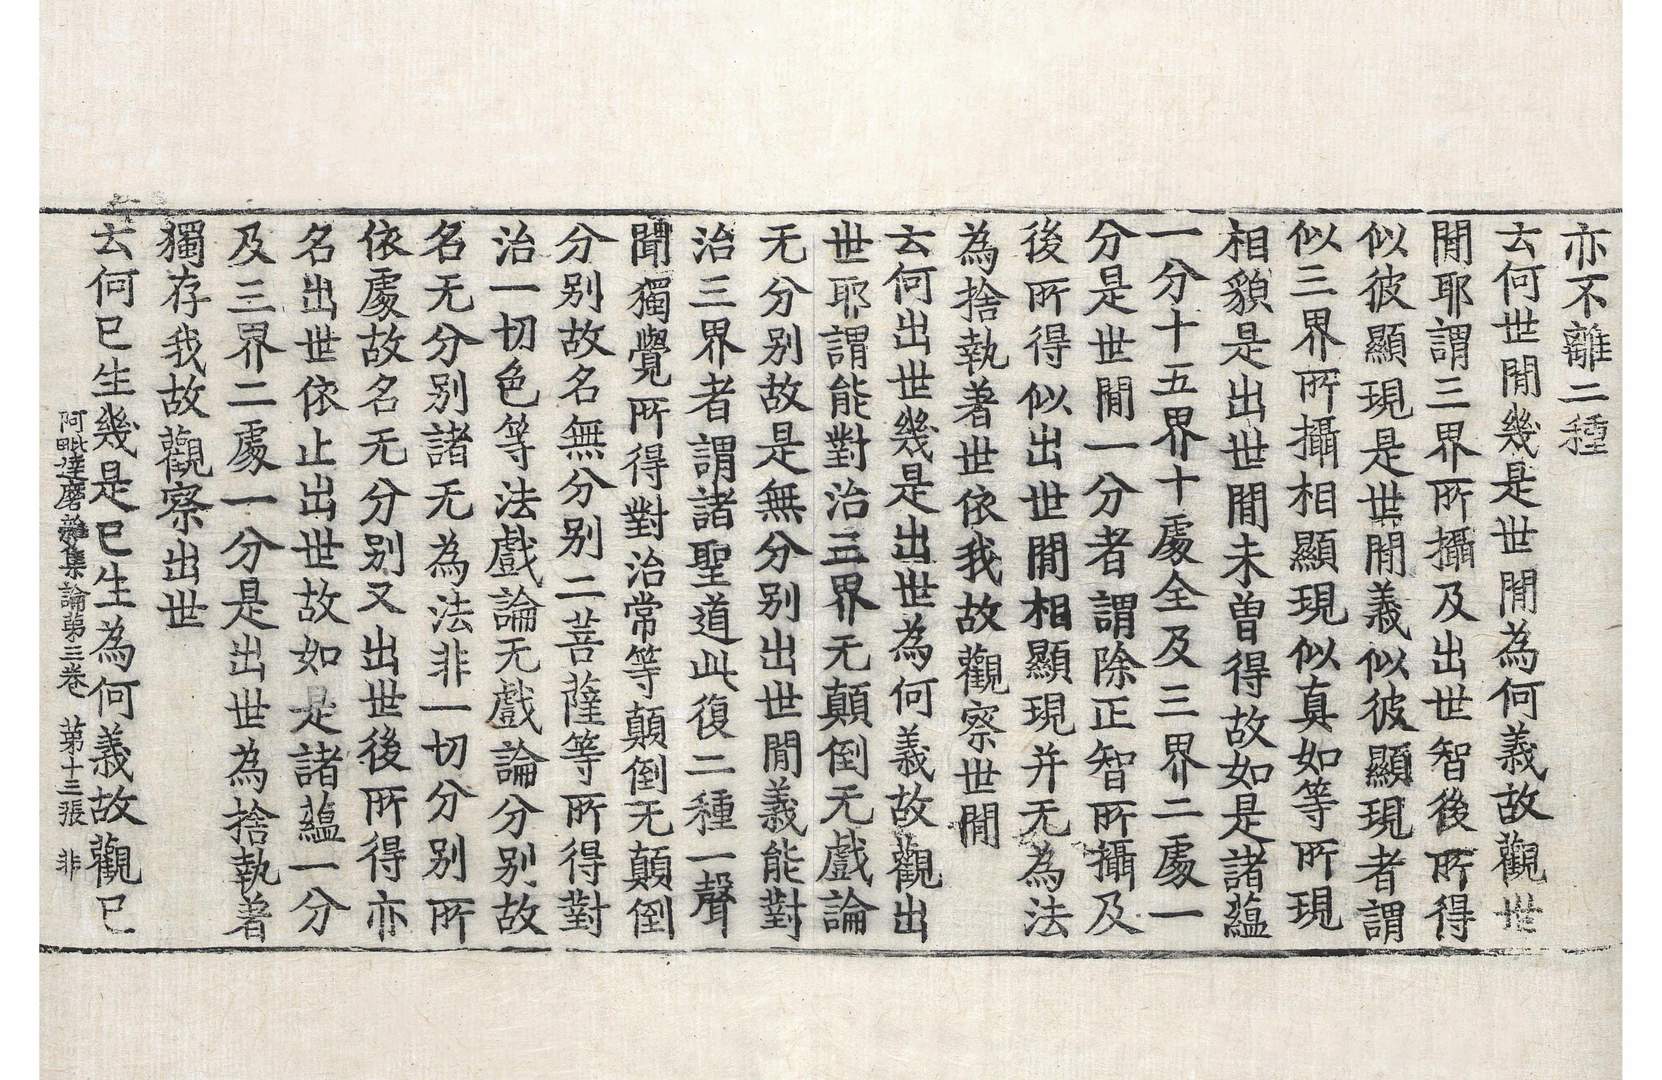 亦不離二種
云何世閒幾是世閒為何義故觀世
閒耶謂三界所攝及出世智後所得
似彼顯現是世閒義似彼顯現者謂
似三界所攝相顯現似真如等所現
相貌是出世閒未曾得故如是諸蘊
一分十五界十處全及三界二處一
分是世閒一分者謂除正智所攝及
後所得似出世閒相顯現并无為法
為捨執著世依我故觀察世閒
云何出世幾是出世為何義故觀出
世耶謂能對治三界无顛倒无戲論
无分別故是無分別出世閒義能對
治三界者謂諸聖道此復二種一聲
聞獨覺所得對治常等顛倒无顛倒
分別故名無分別二菩薩等所得對
治一切色等法戲論无戲論分別故
名无分別諸无為法非一切分別所
依處故名无分別又出世後所得亦
名出世依止出世故如是諸蘊一分
及三界二處一分是出世為捨執著
獨存我故觀察出世
云何已生幾是已生為何義故觀已
阿毗達磨雜集論第三卷 第十三張 非